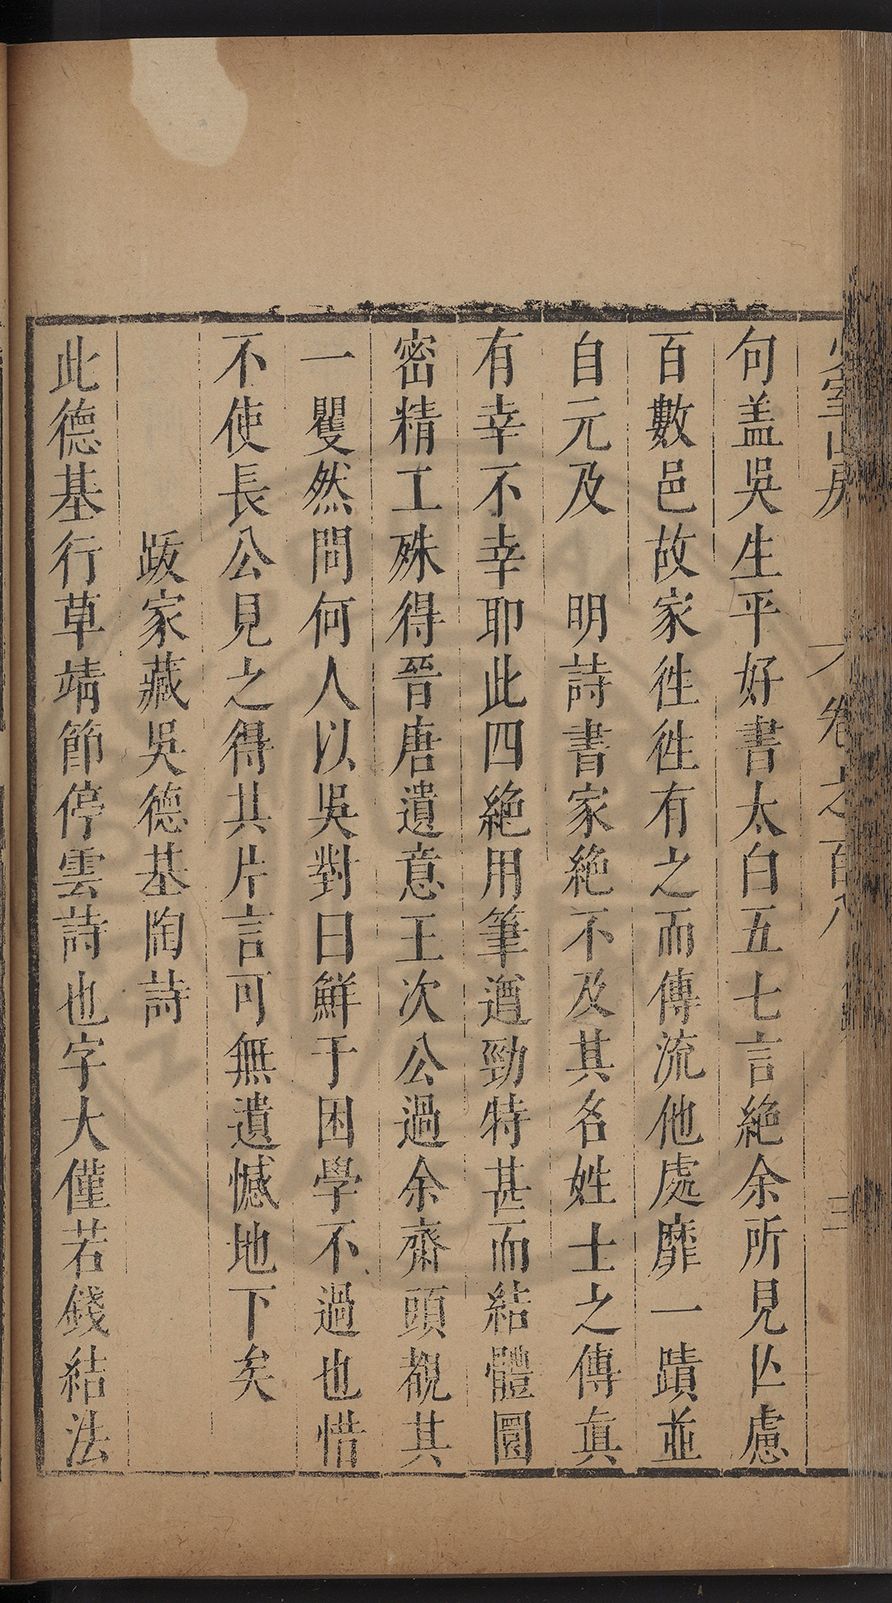 少室山房 卷之百八 三
句盖吳生平好書太白五七言絶余所見亡慮
百數邑故家徃徃有之而傳流他處靡一蹟並
自元及 明詩書家絶不及其名姓士之傳眞
有幸不幸耶此四絶用筆遒勁特甚而結體圓
密精工殊得晉唐遺意王次公過余齋頭覩其
一瞿然問何人以吳對曰鮮于困學不過也惜
不使長公見之得其片言可無遺憾地下矣
跋家藏吳德基陶詩
此德基行草靖節停雲詩也字大僅若錢結法